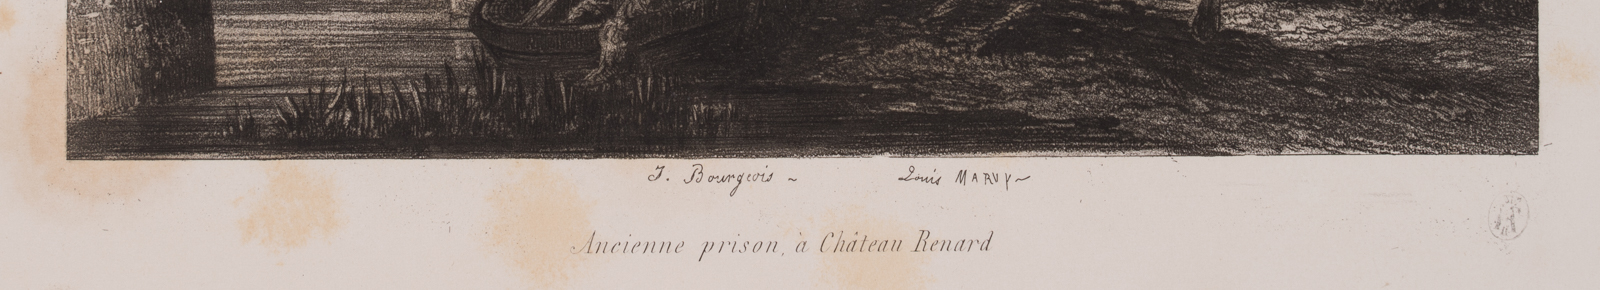 J. Bourgeois ~ Louis MARVY ~
Ancienne prison, à Château Renard